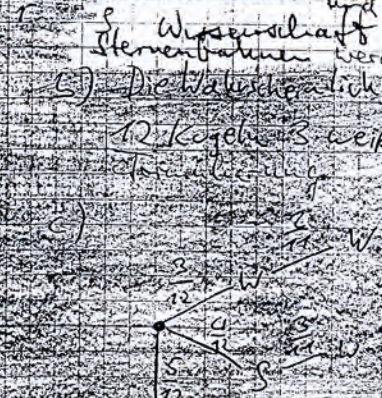 und
Wissenschaft
Sternenbahnen wer
b) Die Wahrscheinlich
12 Kugeln 3 weiß
c)
2/11 W
3/12 W
4/12 3/11 W
S
5/12